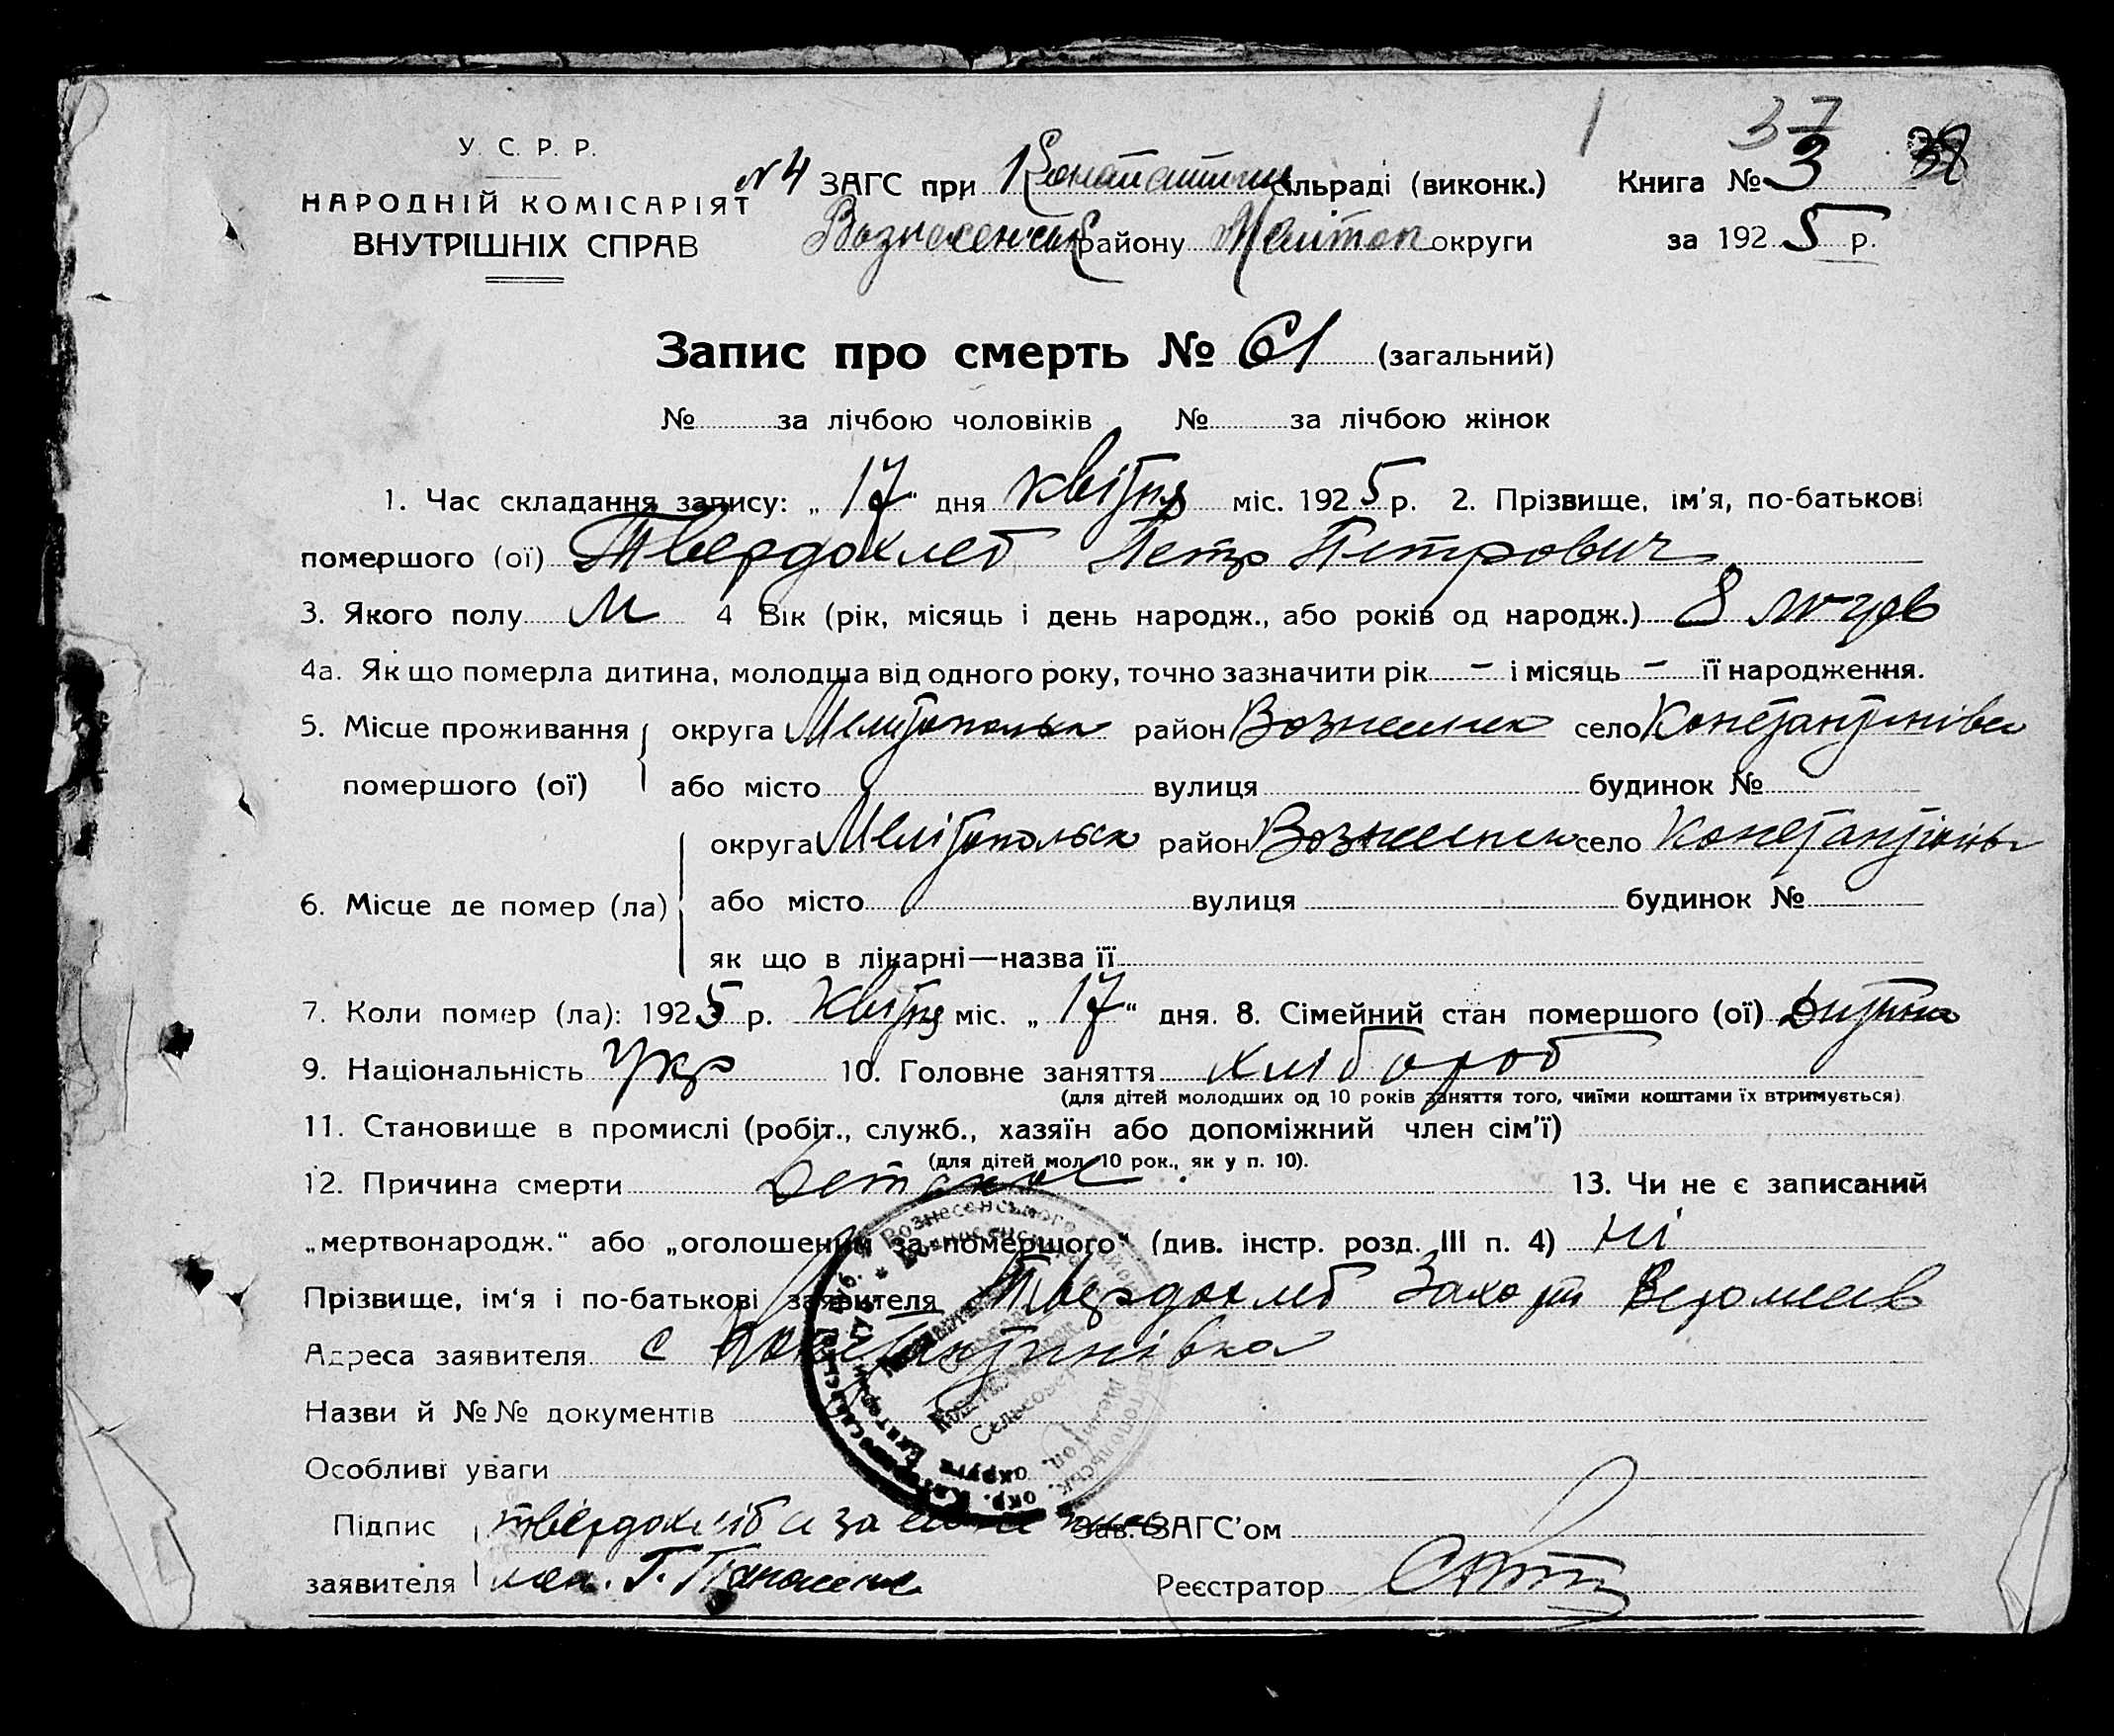 1 37
У. С. Р. Р.
НАРОДНІЙ КОМІСАРІЯТ
ВНУТРІШНІХ СПРАВ
№4 ЗАГС при сільраді (виконк.) Книга № 3 38
району Мелітоп округи за 1925 р.
Запис про смерть № 61 (загальний)
№ за лічбою чоловіків № за лічбою жінок
1. Час складання запису: „17“ дня квітня міс. 1925 р. 2. Прізвище, ім'я, по-батькові
помершого (ої) Твердохлеб Петр Петрович
3. Якого полу М 4 Вік (рік, місяць і день народж., або років од народж.) 8
4а. Як що померла дитина, молодша від одного року, точно зазначити рік – і місяць – її народження.
5. Місце проживання округа Мелітопольск район Вознесенск село Константінівка
помершого (ої) або місто вулиця будинок №
округа Мелітопольск район Вознесенск село Константінівк
6. Місце де помер (ла) або місто вулиця будинок №
як що в лікарні—назва її
7. Коли помер (ла): 1925 р. Квітня міс. „17“ дня. 8. Сімейний стан помершого (ої) Дитина
9. Національність Укр 10. Головне заняття хлібороб
(для дітей молодших од 10 років заняття того, чиїми коштами їх втримується)
11. Становище в промислі (робіт., служб., хазяїн або допоміжний член сім'ї)
(для дітей мол. 10 рок., як у п. 10).
12. Причина смерти Детское 13. Чи не є записаний
„мертвонародж.“ або „оголошений за помершого“ (див. інстр. розд. III п. 4) Ні
Прізвище, ім'я і по-батькові заявителя Твердохлеб
Адреса заявителя с Константинівка
Назви й №№ документів
Особливі уваги
Підпис твердохліба за Зав. ЗАГС'ом
заявителя Г. Реєстратор